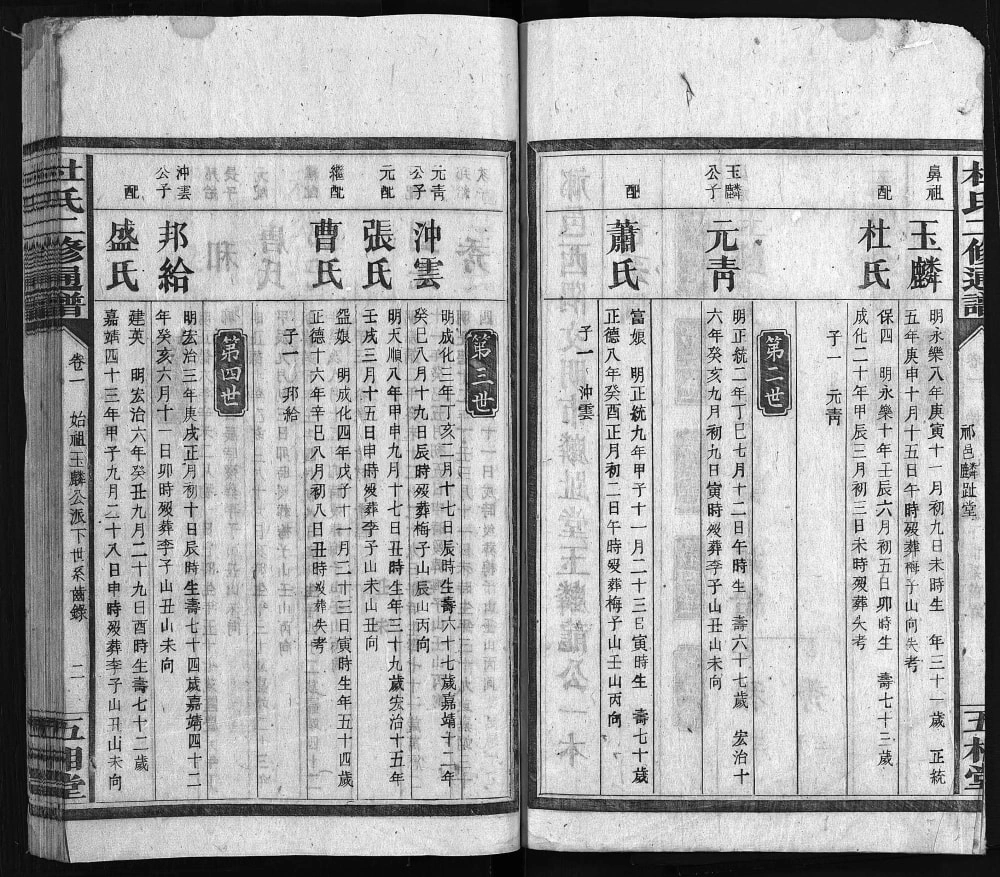 鼻祖
玉麟
明永樂八年庚寅十一月初九日未時生 年三十一歲 正統
五年庚申十月十五日午時歿葬梅子山向失考
配
杜氏
保四 明永樂十年壬辰六月初五日卯時生 壽七十三歲
成化二十年甲辰三月初三日未時歿葬失考
子一 元靑
第二世
玉麟
公子
元靑
明正統二年丁巳七月十二日午時生 壽六十七歲 宏治十
六年癸亥九月初九日寅時歿葬李子山丑山未向
配
蕭氏
富娘 明正統九年甲子十一月二十三日寅時生 壽七十歲
正德八年癸酉正月初二日午時歿葬梅子山壬山丙向
子一 沖雲
祁邑麟趾堂
第三世
元靑
公子
沖雲
明成化三年丁亥八月十七日辰時生壽六十七歲嘉靖十二年
癸巳八月十九日辰時歿葬梅子山辰山丙向
元配
張氏
明天順八年甲申九月十七日丑時生年三十九歲宏治十五年
壬戌三月十五日申時歿葬李子山未山丑向
繼配
曹氏
明成化四年戊子十一月二十三日寅時生年五十四歲
正德十六年辛巳八月初八日丑時歿葬失考
子一 邦給
第四世
沖雲
公子
邦給
明宏治三年庚戌正月初十日辰時生壽七十四歲嘉靖四十二
年癸亥六月十一日卯時歿葬李子山丑山未向
配
盛氏
建英 明宏治六年癸丑九月二十九日酉時生壽七十二歲
嘉靖四十三年甲子九月二十八日申時歿葬李子山丑山未向
杜氏二修通譜
卷一
始祖玉麟公派下世系齒錄
二